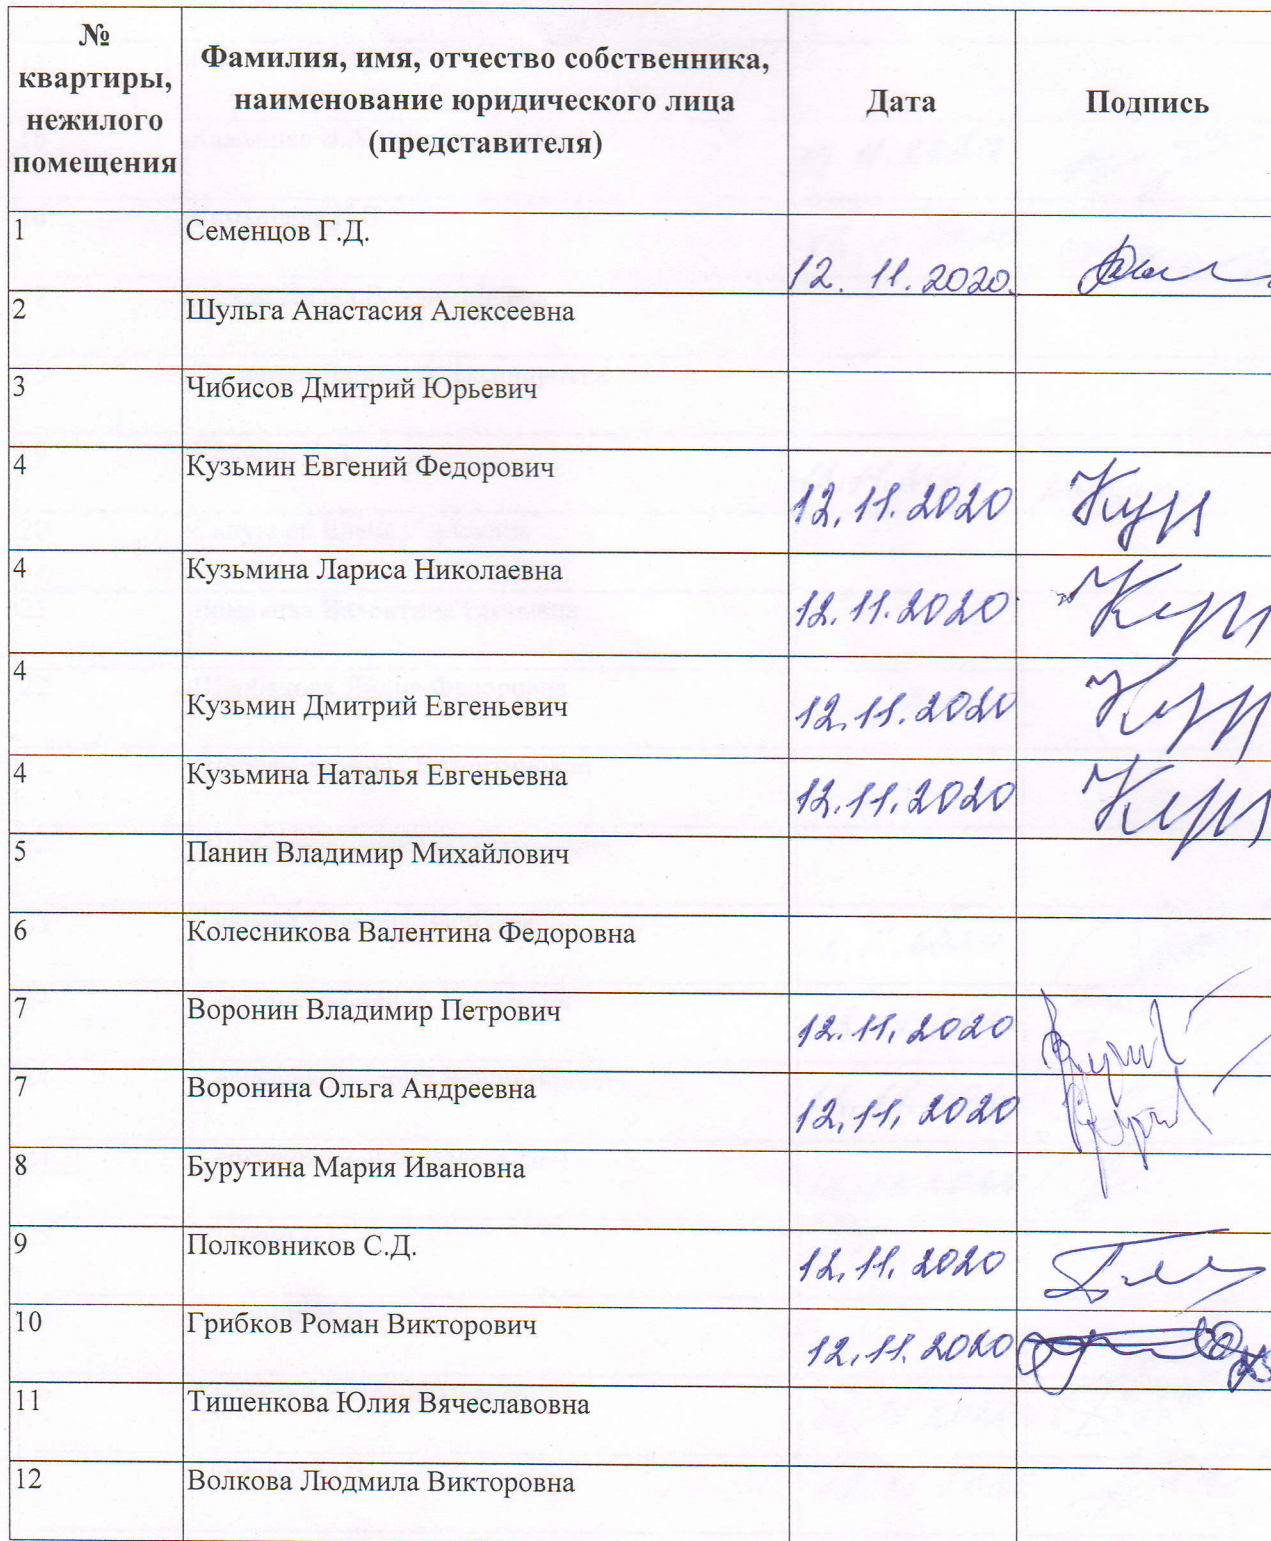 № квартиры, нежилого помещения Фамилия, имя, отчество собственника, наименование юридического лица (представителя) Дата Подпись
1 Семенцов Г.Д. 12.11.2020.
2 Шульга Анастасия Алексеевна
3 Чибисов Дмитрий Юрьевич
4 Кузьмин Евгений Федорович 12.11.2020
4 Кузьмина Лариса Николаевна 12.11.2020
4 Кузьмин Дмитрий Евгеньевич 12.11.2020
4 Кузьмина Наталья Евгеньевна 12.11.2020
5 Панин Владимир Михайлович
6 Колесникова Валентина Федоровна
7 Воронин Владимир Петрович 12.11.2020
7 Воронина Ольга Андреевна 12.11.2020
8 Бурутина Мария Ивановна
9 Полковников С.Д. 12.11.2020
10 Грибков Роман Викторович 12.11.2020
11 Тишенкова Юлия Вячеславовна
12 Волкова Людмила Викторовна